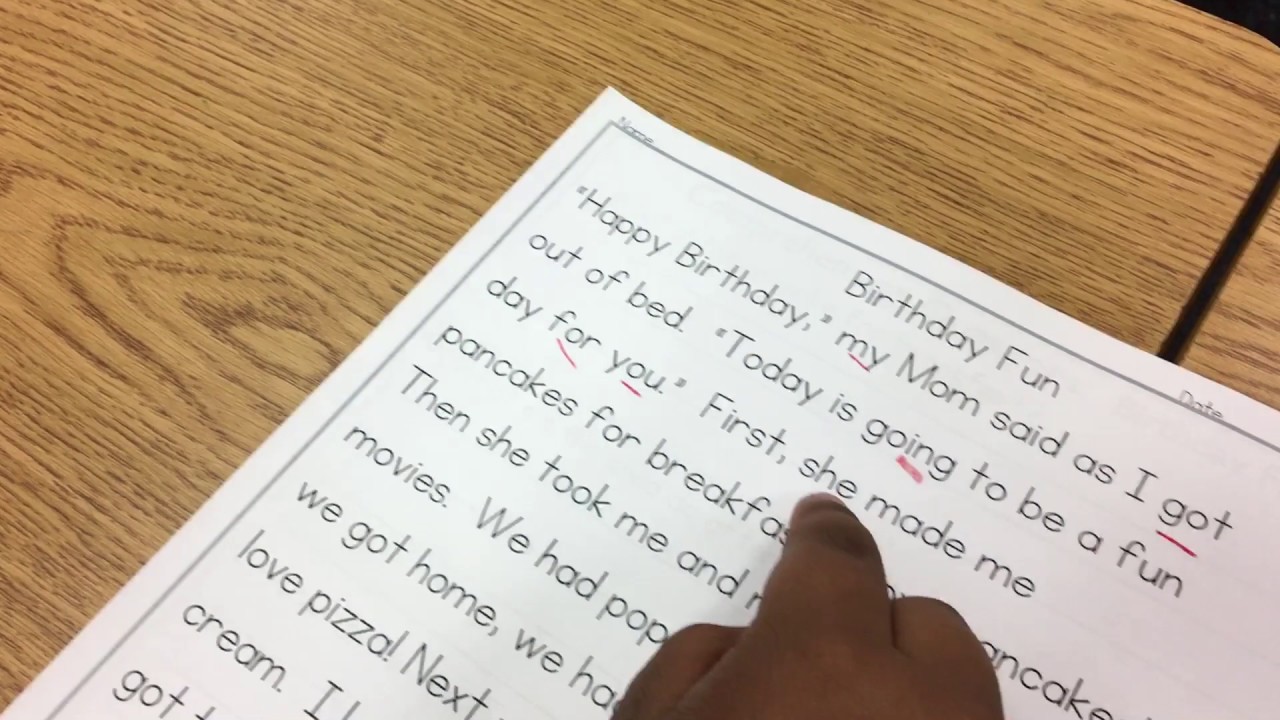 Name
Date
Birthday Fun
"Happy Birthday," my Mom said as I got
out of bed. "Today is going to be a fun
day for you." First, she made me
pancakes for breakfas
Then she took me and
movies. We had pop
we got home, we ha
love pizza! Next
cream. I
got